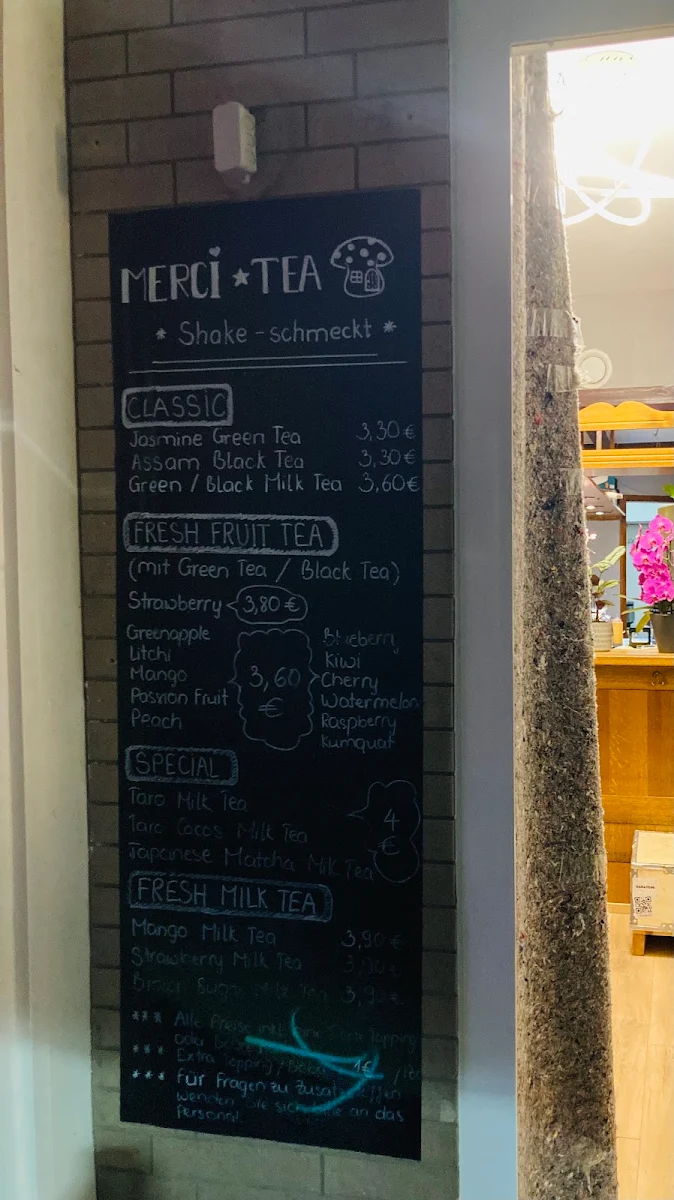 MERCi ★ TEA
* Shake - schmeckt *
CLASSIC
Jasmine Green Tea 3,30 €
Assam Black Tea 3,30 €
Green / Black Milk Tea 3,60 €
FRESH FRUIT TEA
(mit Green Tea / Black Tea)
Strawberry 3,80 €
Greenapple
Litchi
Mango
Passion Fruit
Peach
3,60
€
Blueberry
Kiwi
Cherry
Watermelon
Raspberry
Kumquat
SPECIAL
Taro Milk Tea
Taro Cocos Milk Tea
Japanese Matcha Milk Tea
4
€
FRESH MILK TEA
Mango Milk Tea 3,90 €
Strawberry Milk Tea 3,90 €
Milk Tea 3,90 €
*** Alle Preise inkl. Topping
oder
*** Extra Topping / 1€
*** Für Fragen zu
wenden Sie sich an das
Personal.